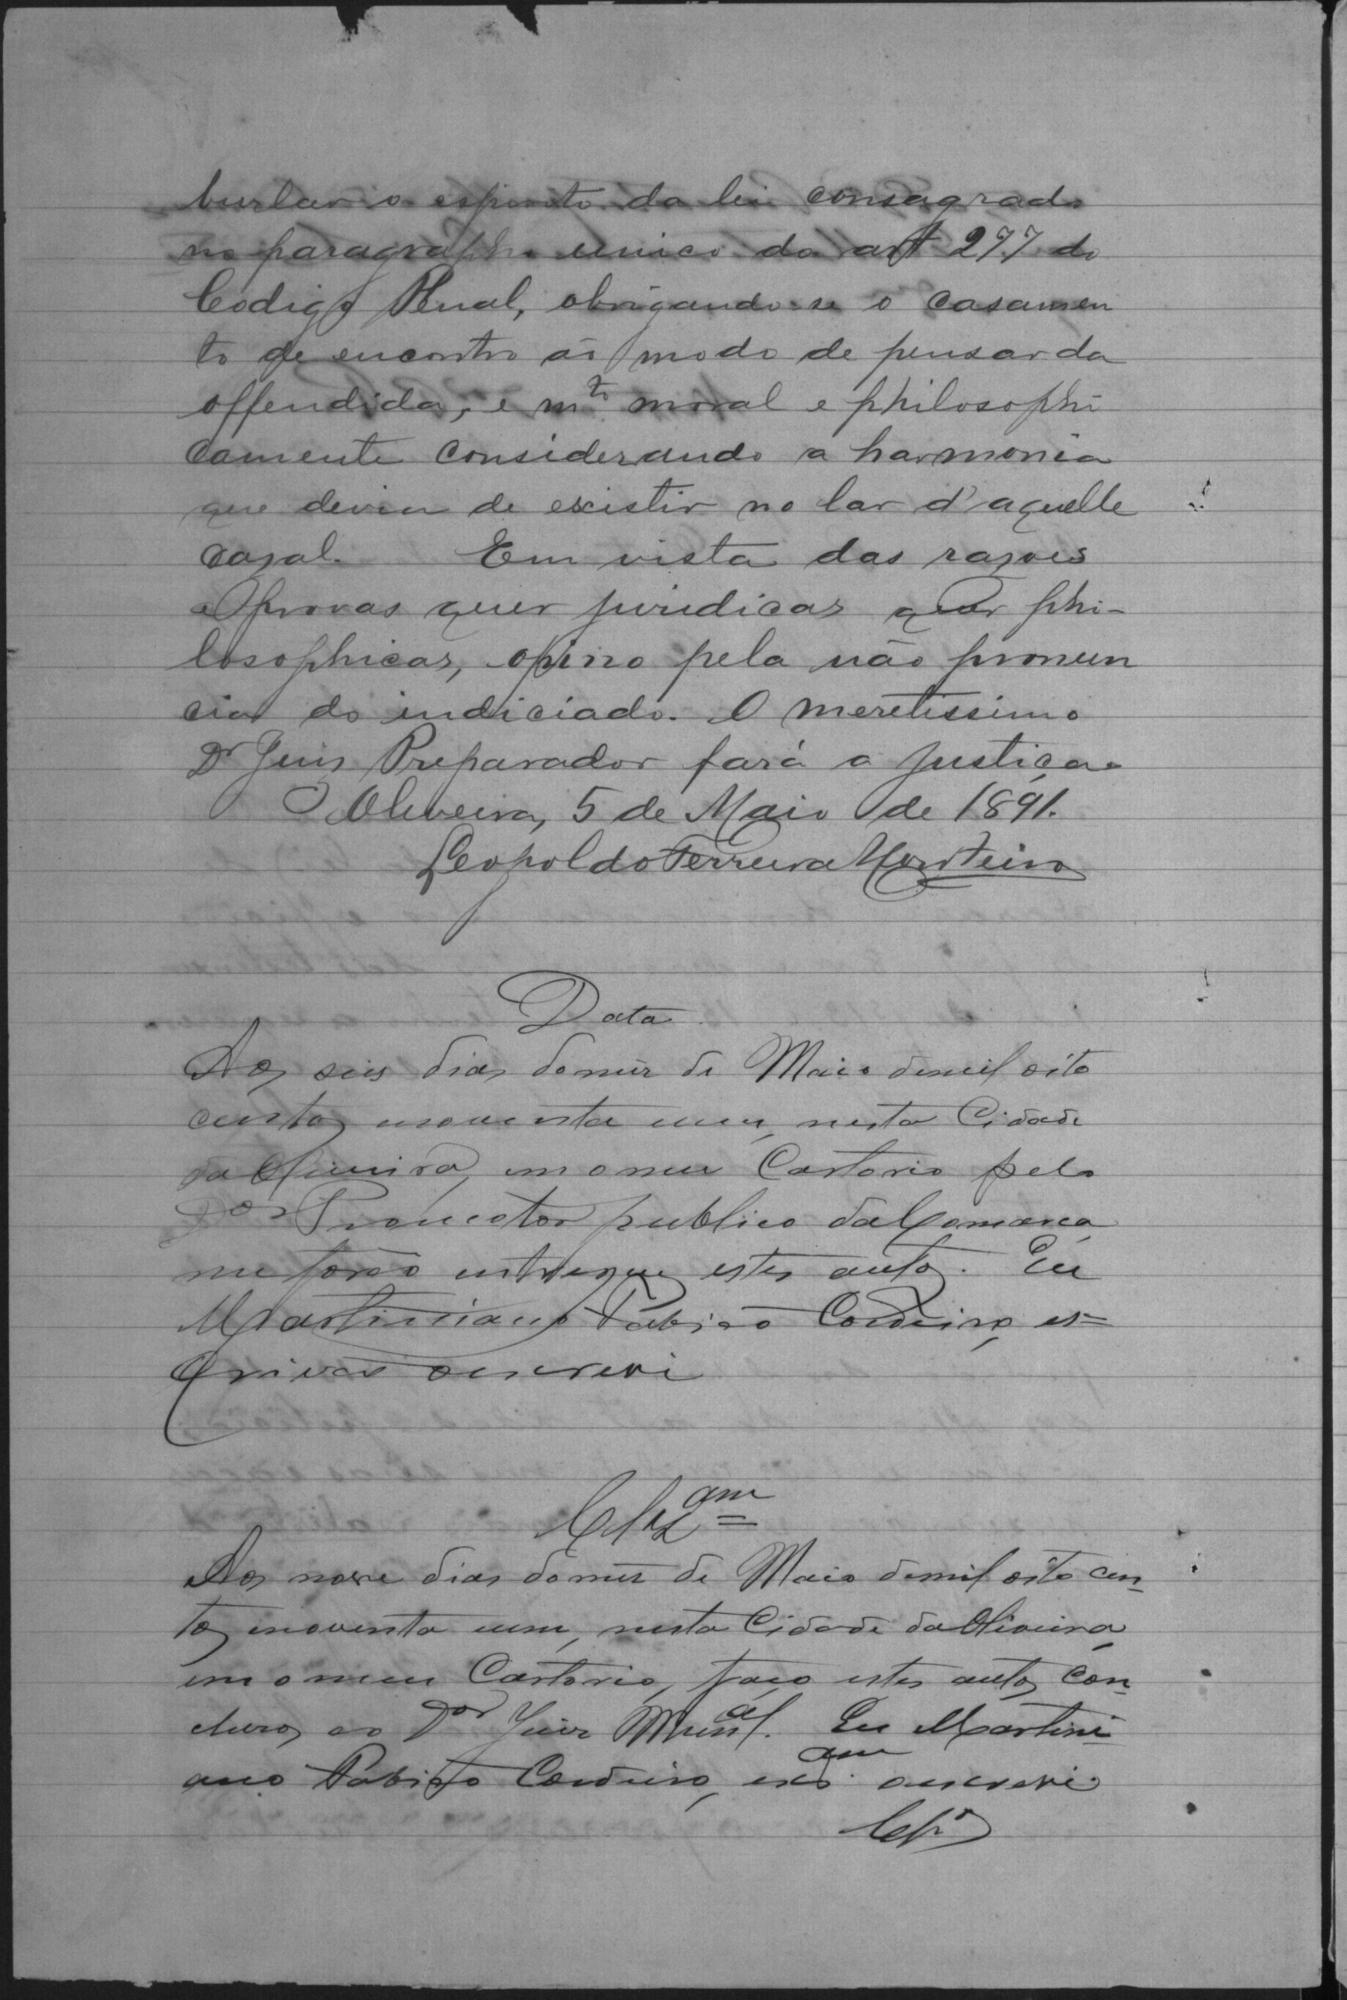 burlar o espirito da lei consagrado
no paragrapho unico do art 277 do
Codigo Penal, obrigando-se o casamen
to de encontro ao modo de pensar da
offendida, e mto moral e philosophi
camente considerando a harmonia
que devia de existir no lar d'aquelle
casal. Em vista das rasões
e provas quer juridicas quer phi-
losophicas, opino pela não pronun
cia do indiciado. O meretissimo
Dr Juis Preparador fará a justiça.
Oliveira, 5 de Maio de 1891.
Leopoldo Ferreira Monteiro
Data
Aos seis dias do mez de Maio de mil oito
centos enoventa eum, nesta Cidade
da Oliveira, em o meu Cartorio pelo
Dor Promotor publico da Comarca
me forão entregues estes autos. Eu
Martiniano Cordeiro, es=
crivão oescrevi
Clzam
Aos nove dias do mez de Maio demil oito cen-
tos enoventa eum, nesta Cidade da Oliveira,
em o meu Cartorio, faço estes autos con-
cluzos ao Dor Juiz Munal. Eu Martini
ano Cordeiro, escam oescrevi
Clzo